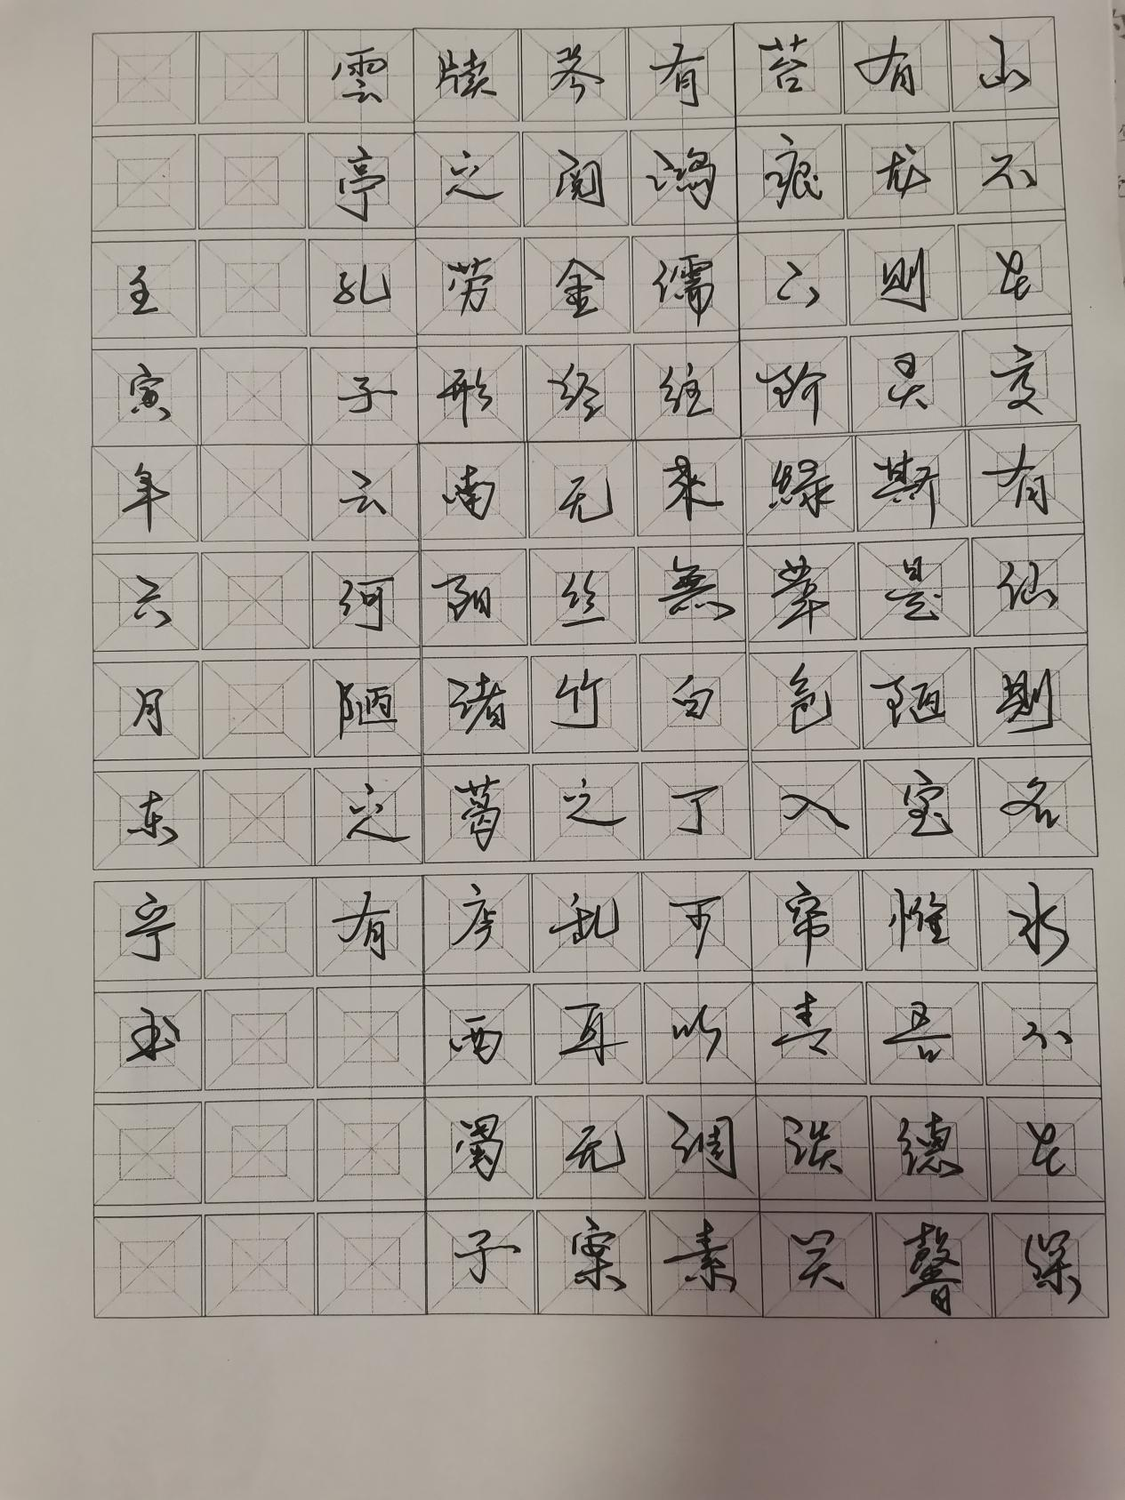 山不在高有仙則名水不在深
有龙则灵斯是陋室惟吾德馨
苔痕上阶緑草色入帘青谈笑
有鸿儒往来無白丁可以调素
琴阅金经无丝竹之乱耳无案
牍之劳形南阳诸葛庐西蜀子
雲亭孔子云何陋之有
壬寅年六月东宁书